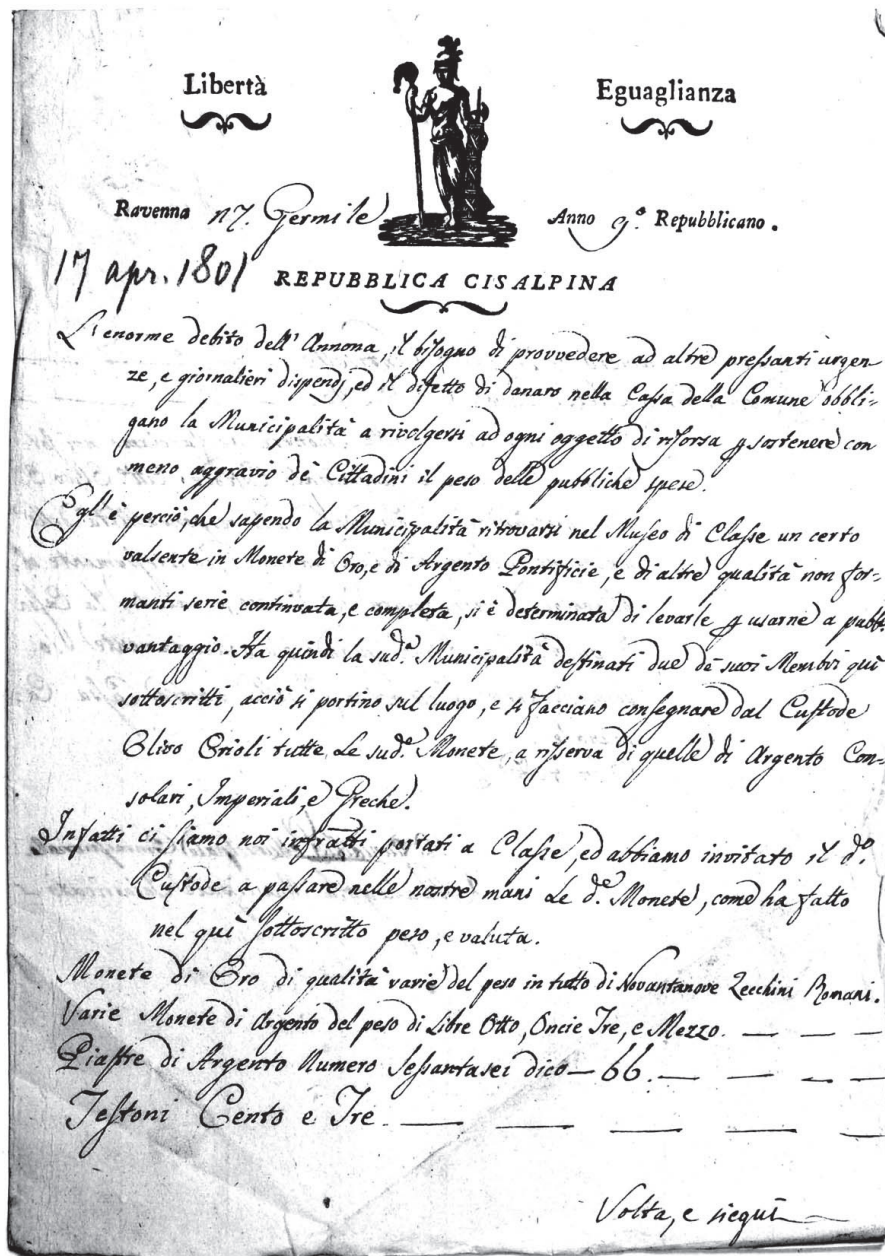 Libertà
Eguaglianza
Ravenna 27. Germile Anno 9.° Repubblicano.
17 apr. 1801
REPUBBLICA CISALPINA
L'enorme debito dell'Annona, il bisogno di provvedere ad altre pressanti urgen-
ze, e giornalieri dispendj, ed il difetto di danaro nella Cassa della Comune obbli-
gano la Municipalità a rivolgersi ad ogni oggetto di risorsa p sostenere con
meno aggravio de' Cittadini il peso delle pubbliche spese.
Egl' è perciò, che sapendo la Municipalità ritrovarsi nel Museo di Classe un certo
valsente in Monete di Oro, e di Argento Pontificie, e di altre qualità non for-
manti serie continuata, e completa, si è determinata di levarle p usarne a pubb.
vantaggio. Ha quindi la sud.ª Municipalità destinati due de suoi Membri quì
sottoscritti, acciò si portino sul luogo, e si facciano consegnare dal Custode
Olivo Orioli tutte Le sud.e Monete, a risserva di quelle di Argento Con-
solari, Imperiali, e Greche.
Infatti ci siamo noi infratti portati a Classe, ed abbiamo invitato il d.°
Custode a passare nelle nostre mani Le d.e Monete, come ha fatto
nel quì sottoscritto peso, e valuta.
Monete di Oro di qualità varie del peso in tutto di Novantanove Zecchini Romani.
Varie Monete di Argento del peso di Libre Otto, Oncie Tre, e Mezzo. — — —
Piastre di Argento Numero Sessantasei dico — 66. — — — —
Testoni Cento e Tre. — — — — —
Volta, e siegue